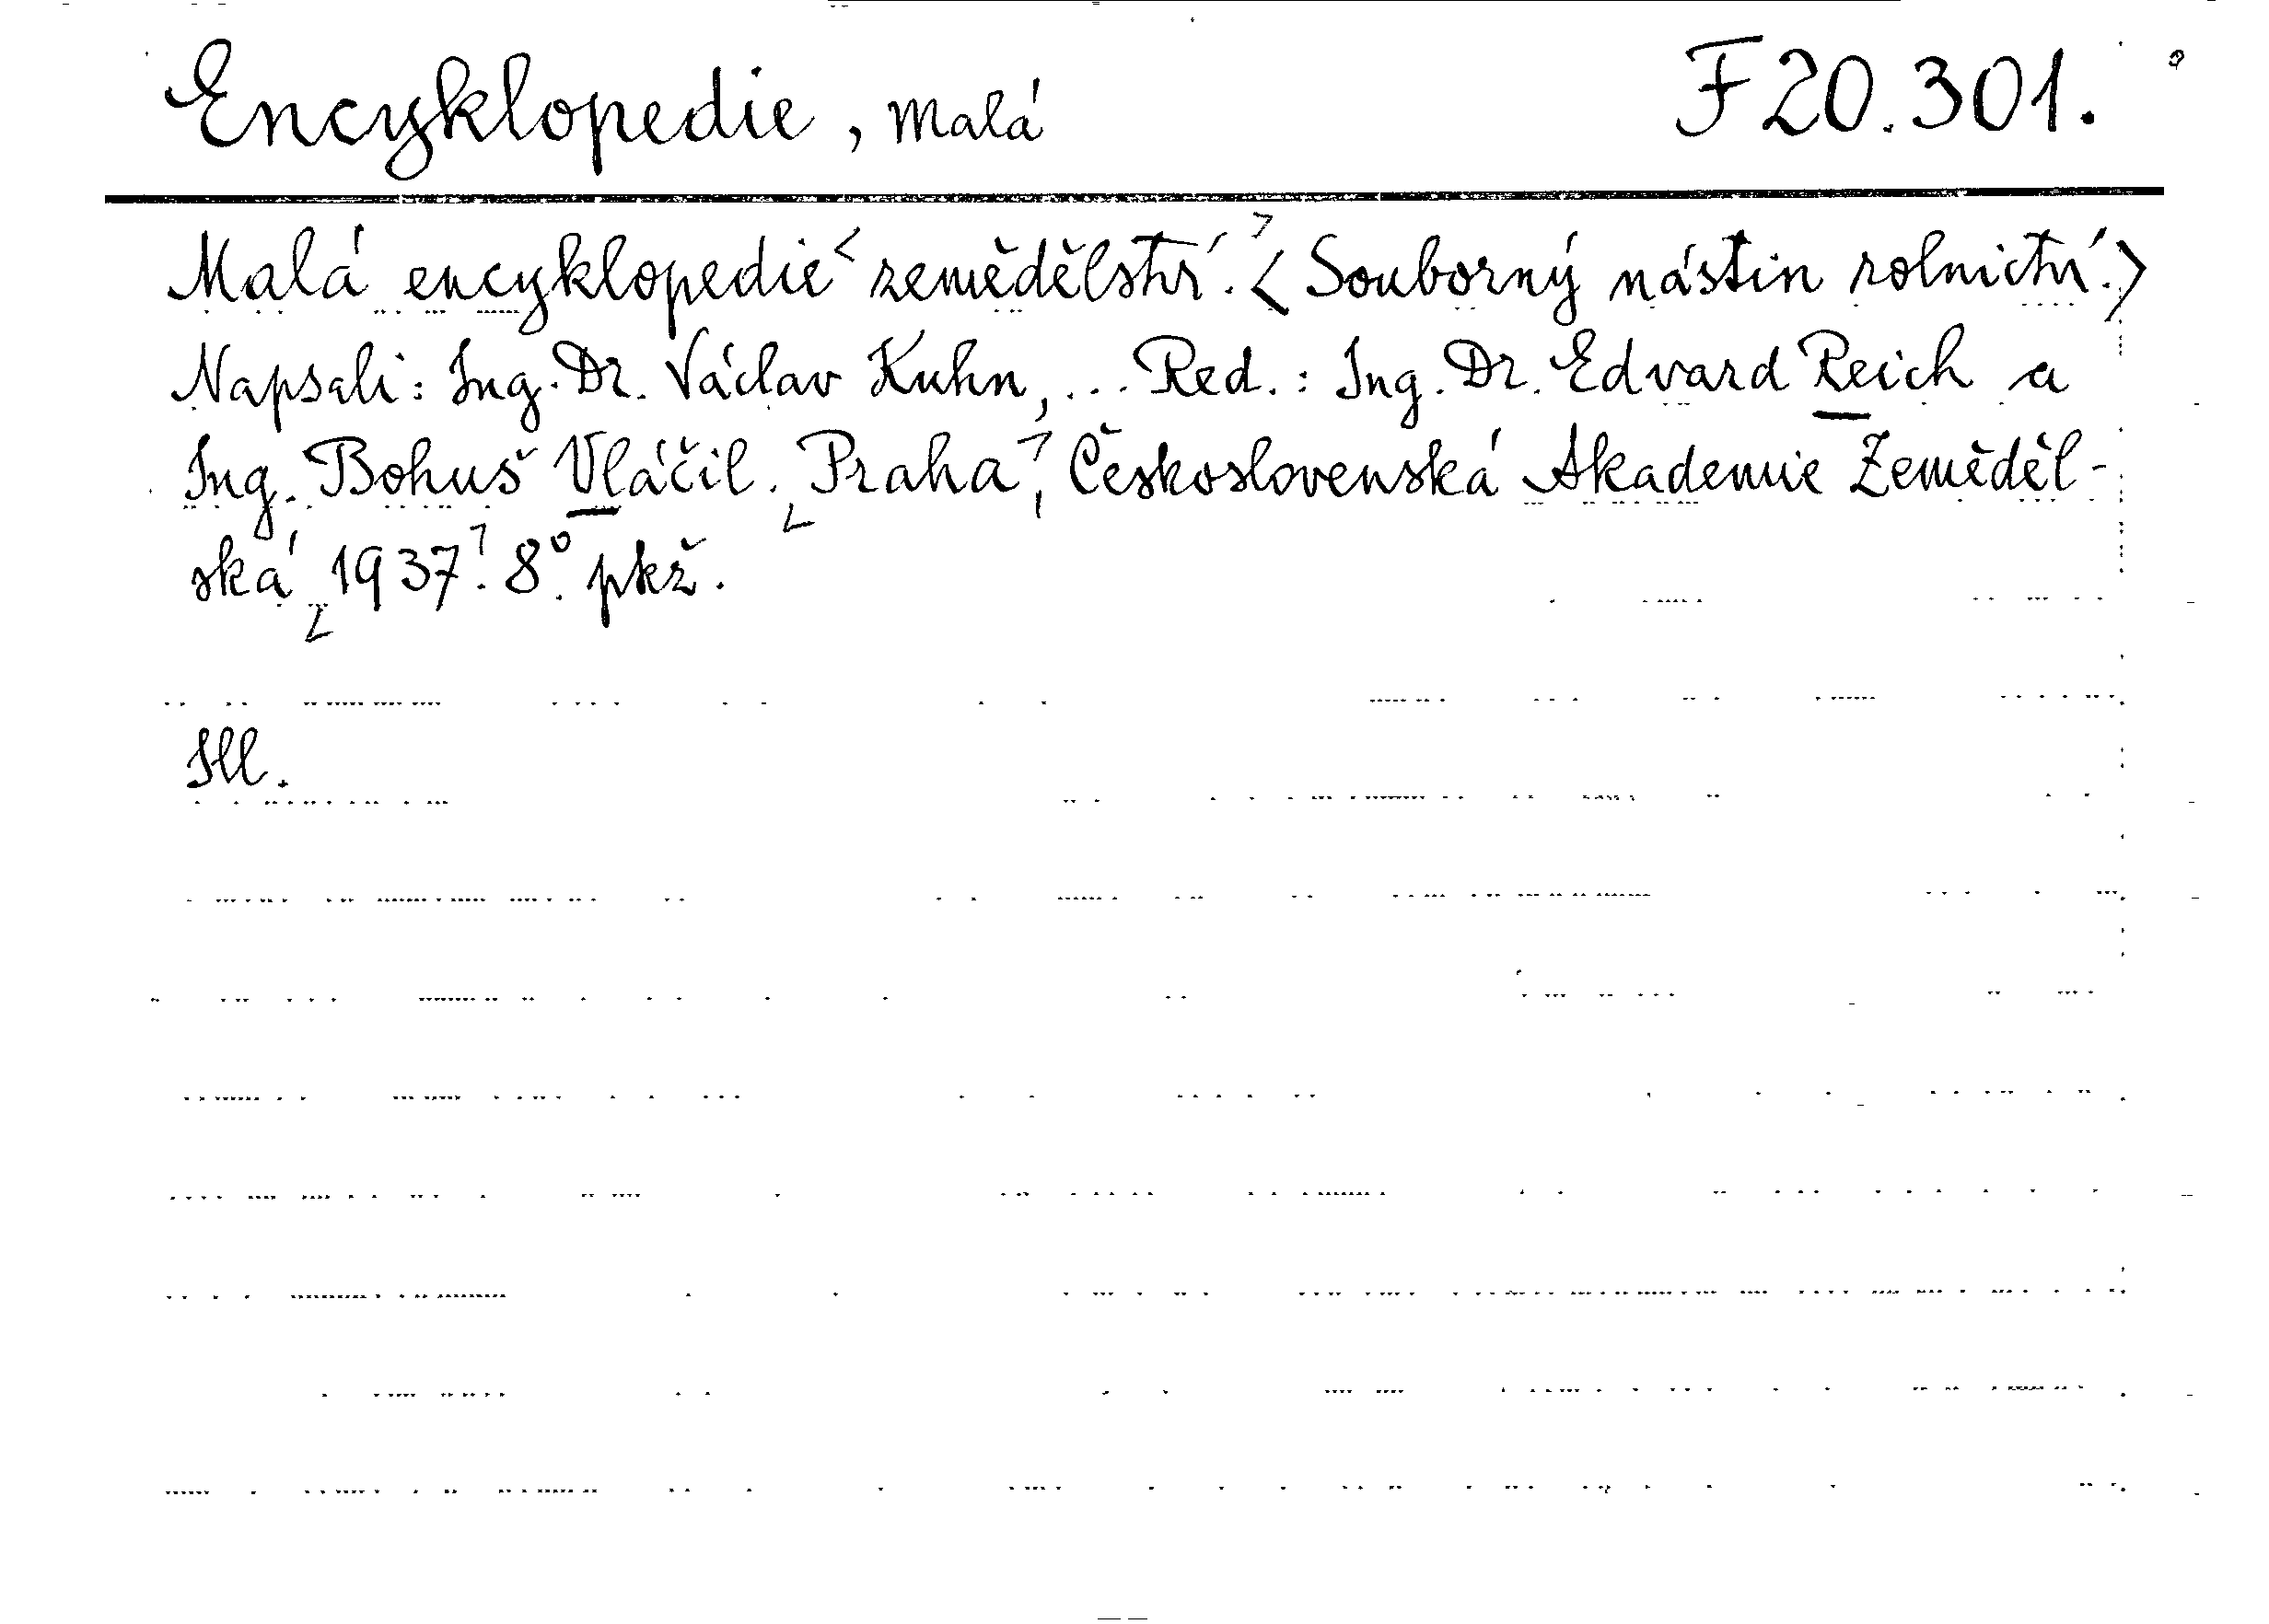 Encyklopedie, Malá F 20.301.
Malá encyklopedie zemědělství. <Souborný nástin rolnictví.>
Napsali: Ing. Dr. Václav Kuhn, ... Red.: Ing. Dr. Edvard Reich a
Ing. Bohuš Vláčil. Praha, Československá Akademie Zeměděl-
ská 1937. 8°. pkž.
Ill.